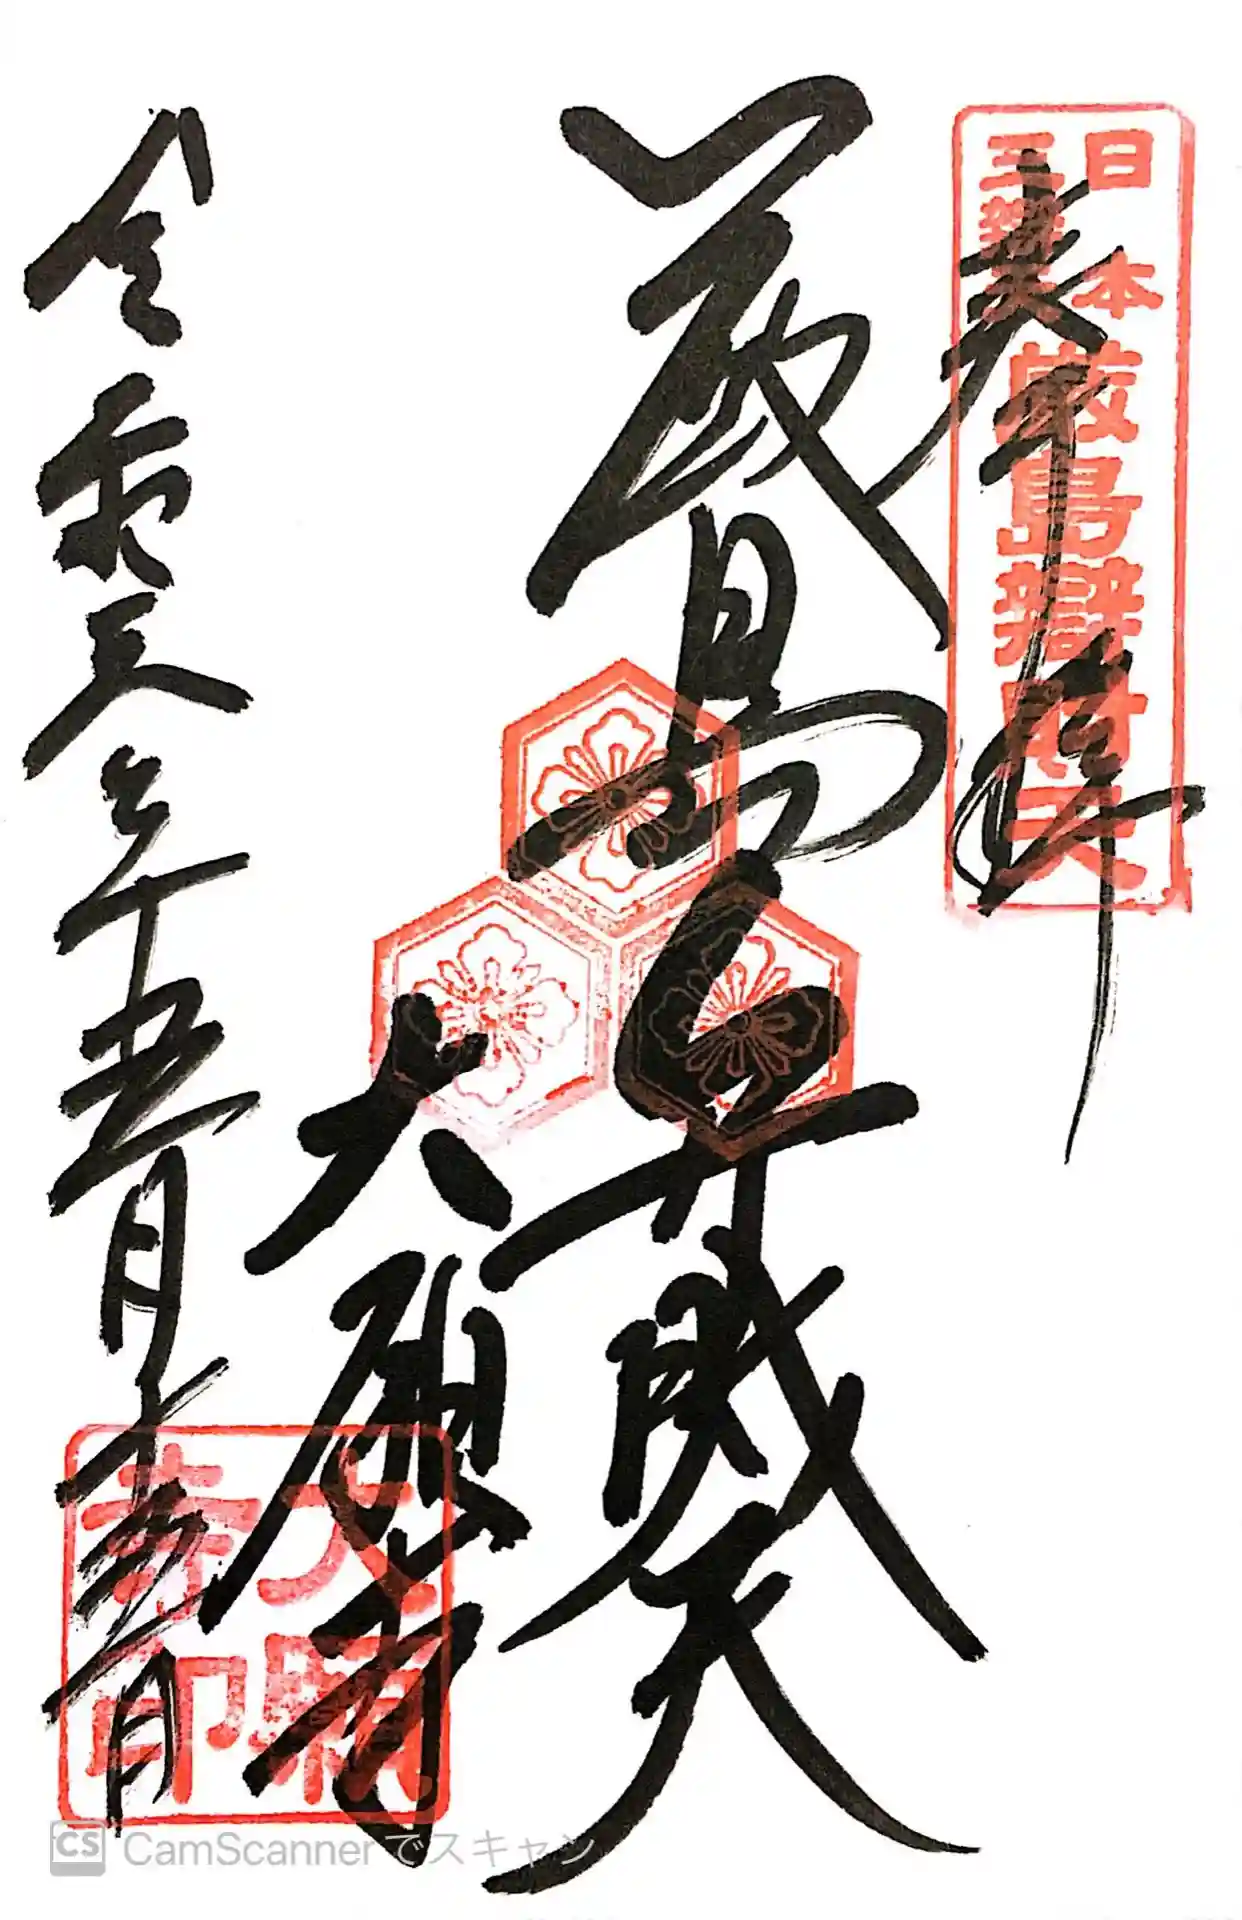 奉拝
日本
三辯天
厳島辯財天
厳島弁財天
大願寺
大願
寺印
令和三年五月十五日
CS CamScannerでスキャン